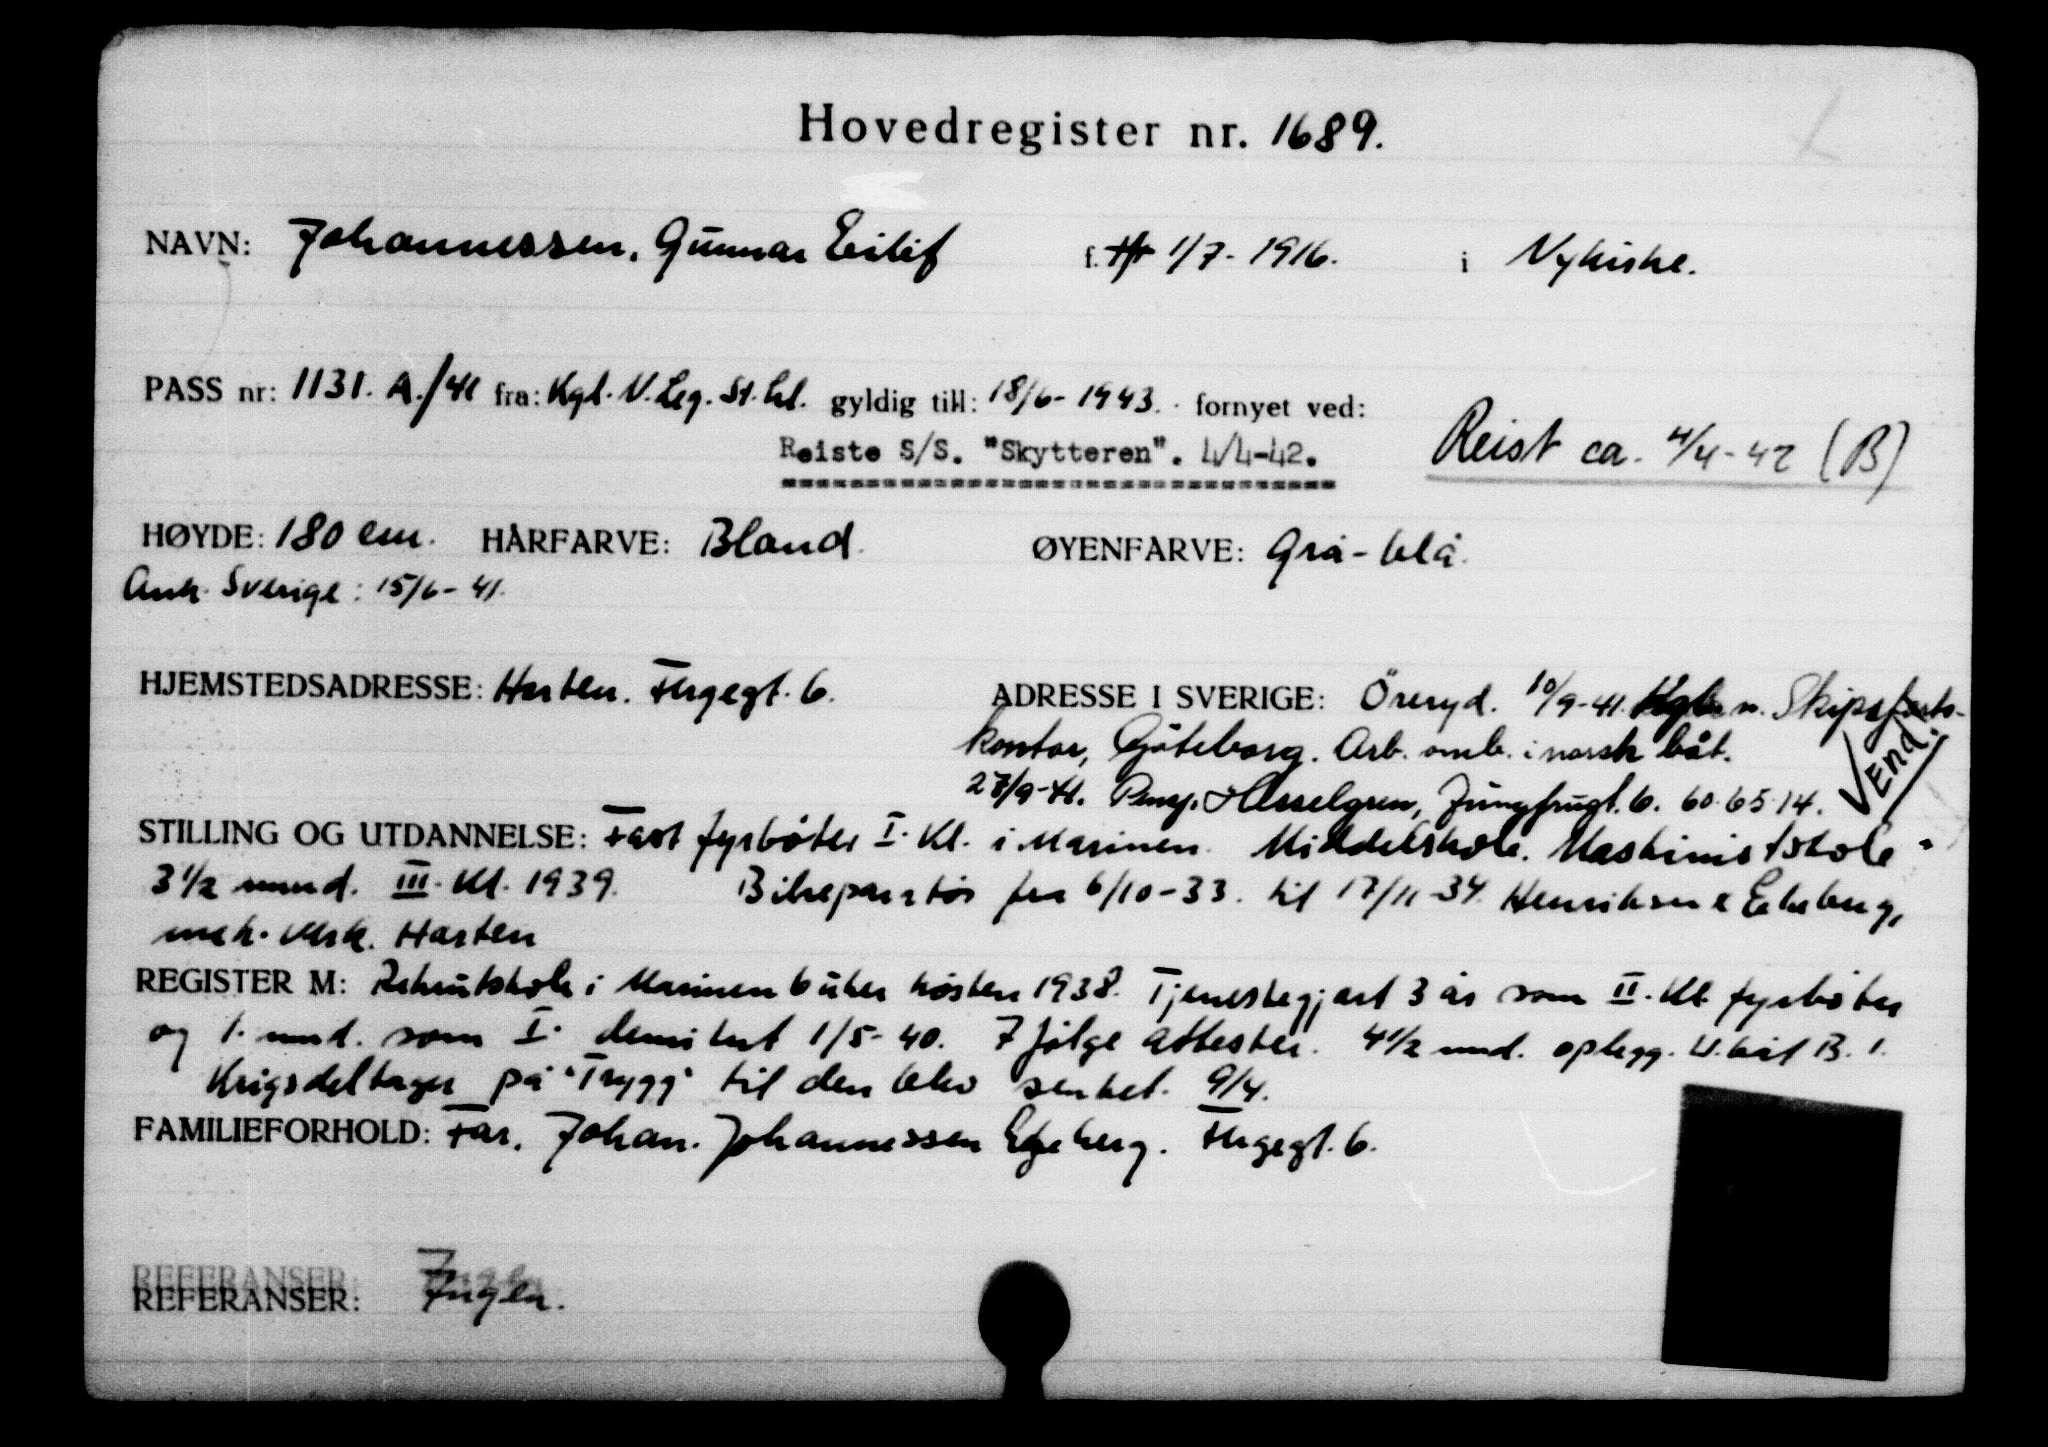 Hovedregister nr. 1689.
NAVN: Johannessen, Gunnar Eilif f. 1/7- 1916. i Nykirke.
PASS nr: 1131. A./41 fra: Kgl. N. Leg. St.hl. gyldig till: 18/6- 1943. fornyet ved:
Reiste S/S. "Skytteren". 4/4-42. Reist ca. 4/4-42 (B)
HØYDE: 180 cm. HÅRFARVE: Bland. ØYENFARVE: Grå-blå.
Ank. Sverige: 15/6- 41.
HJEMSTEDSADRESSE: Horten. Fergegt. 6. ADRESSE I SVERIGE: Öreryd. 10/9-41. n. Skipsfarts-
kontor, Gøteborg. Arb. omb. i norsk båt.
27/9-41. Pensj. Hesselgren, Jungfrugt. 6. 60.65.14. Vend!
STILLING OG UTDANNELSE: Fast fyrbøter I. Kl. i Marinen. Middelskole. Maskinistskole
3 1/2 mnd. III. Kl. 1939. Bilreparatør fra 6/10-33. til 17/11-34. Henriksen & Ekeberg,
mek. verk. Horten
REGISTER M: Rekrutskole i Marinen 6 uker høsten 1938. Tjenestegjort 3 år som II. Kl. fyrbøter
og 1. mnd. som I. demitert 1/5- 40. 7 følge attester. 4 1/2 mnd. oplegg. U.båt B. 1.
Krigsdeltager på "Trygg" til den blev senket. 9/4.
FAMILIEFORHOLD: Far. Johan. Johannessen Ekeberg. Fergegt. 6.
REFERANSER: Ingen.